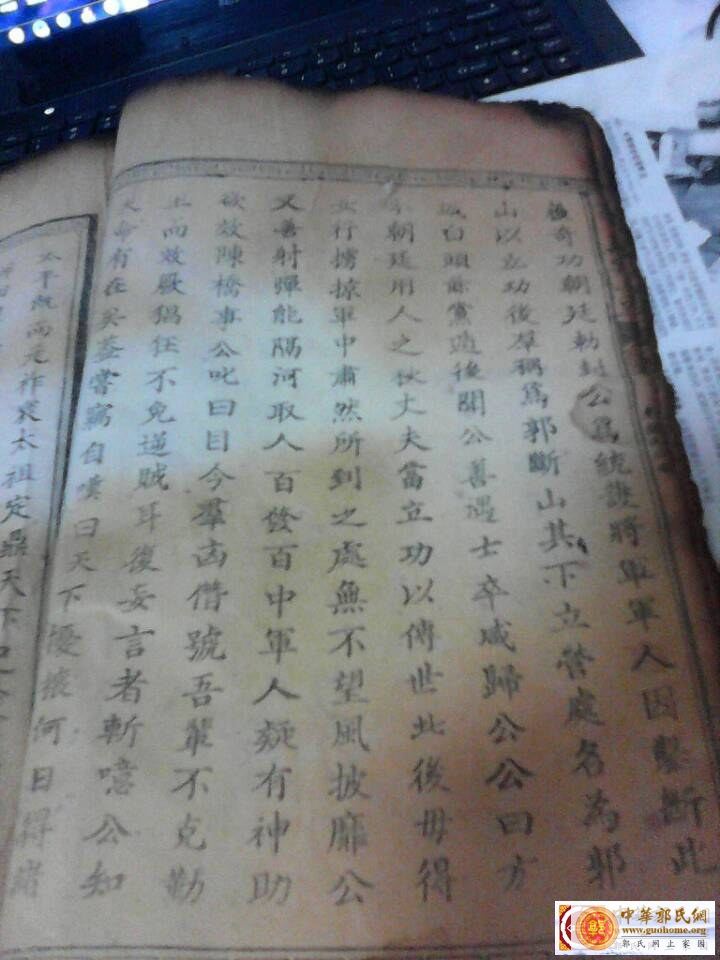 奇功朝廷勅封公為統護將軍軍人因鑿斷此
山以立功後羣稱為郭斷山其下立營處名為郭
白頭餘黨過後聞公善遇士卒咸歸公公曰方
朝廷用人之秋丈夫當立功以傳世此後毋得
妄行擄掠軍中肅然所到之處無不望風披靡公
又善射彈能隔河取人百發百中軍人疑有神助
欲效陳橋事公叱曰目今羣凶僭號吾輩不克勤
王而效厥猖狂不免逆賊耳復妄言者斬噫公知
天命有在矣蓋嘗竊自嘆曰天下擾攘何日得睹
太平既而元祚衰太祖定鼎天下
中華郭氏網
www.guohome.com
郭氏網上家園